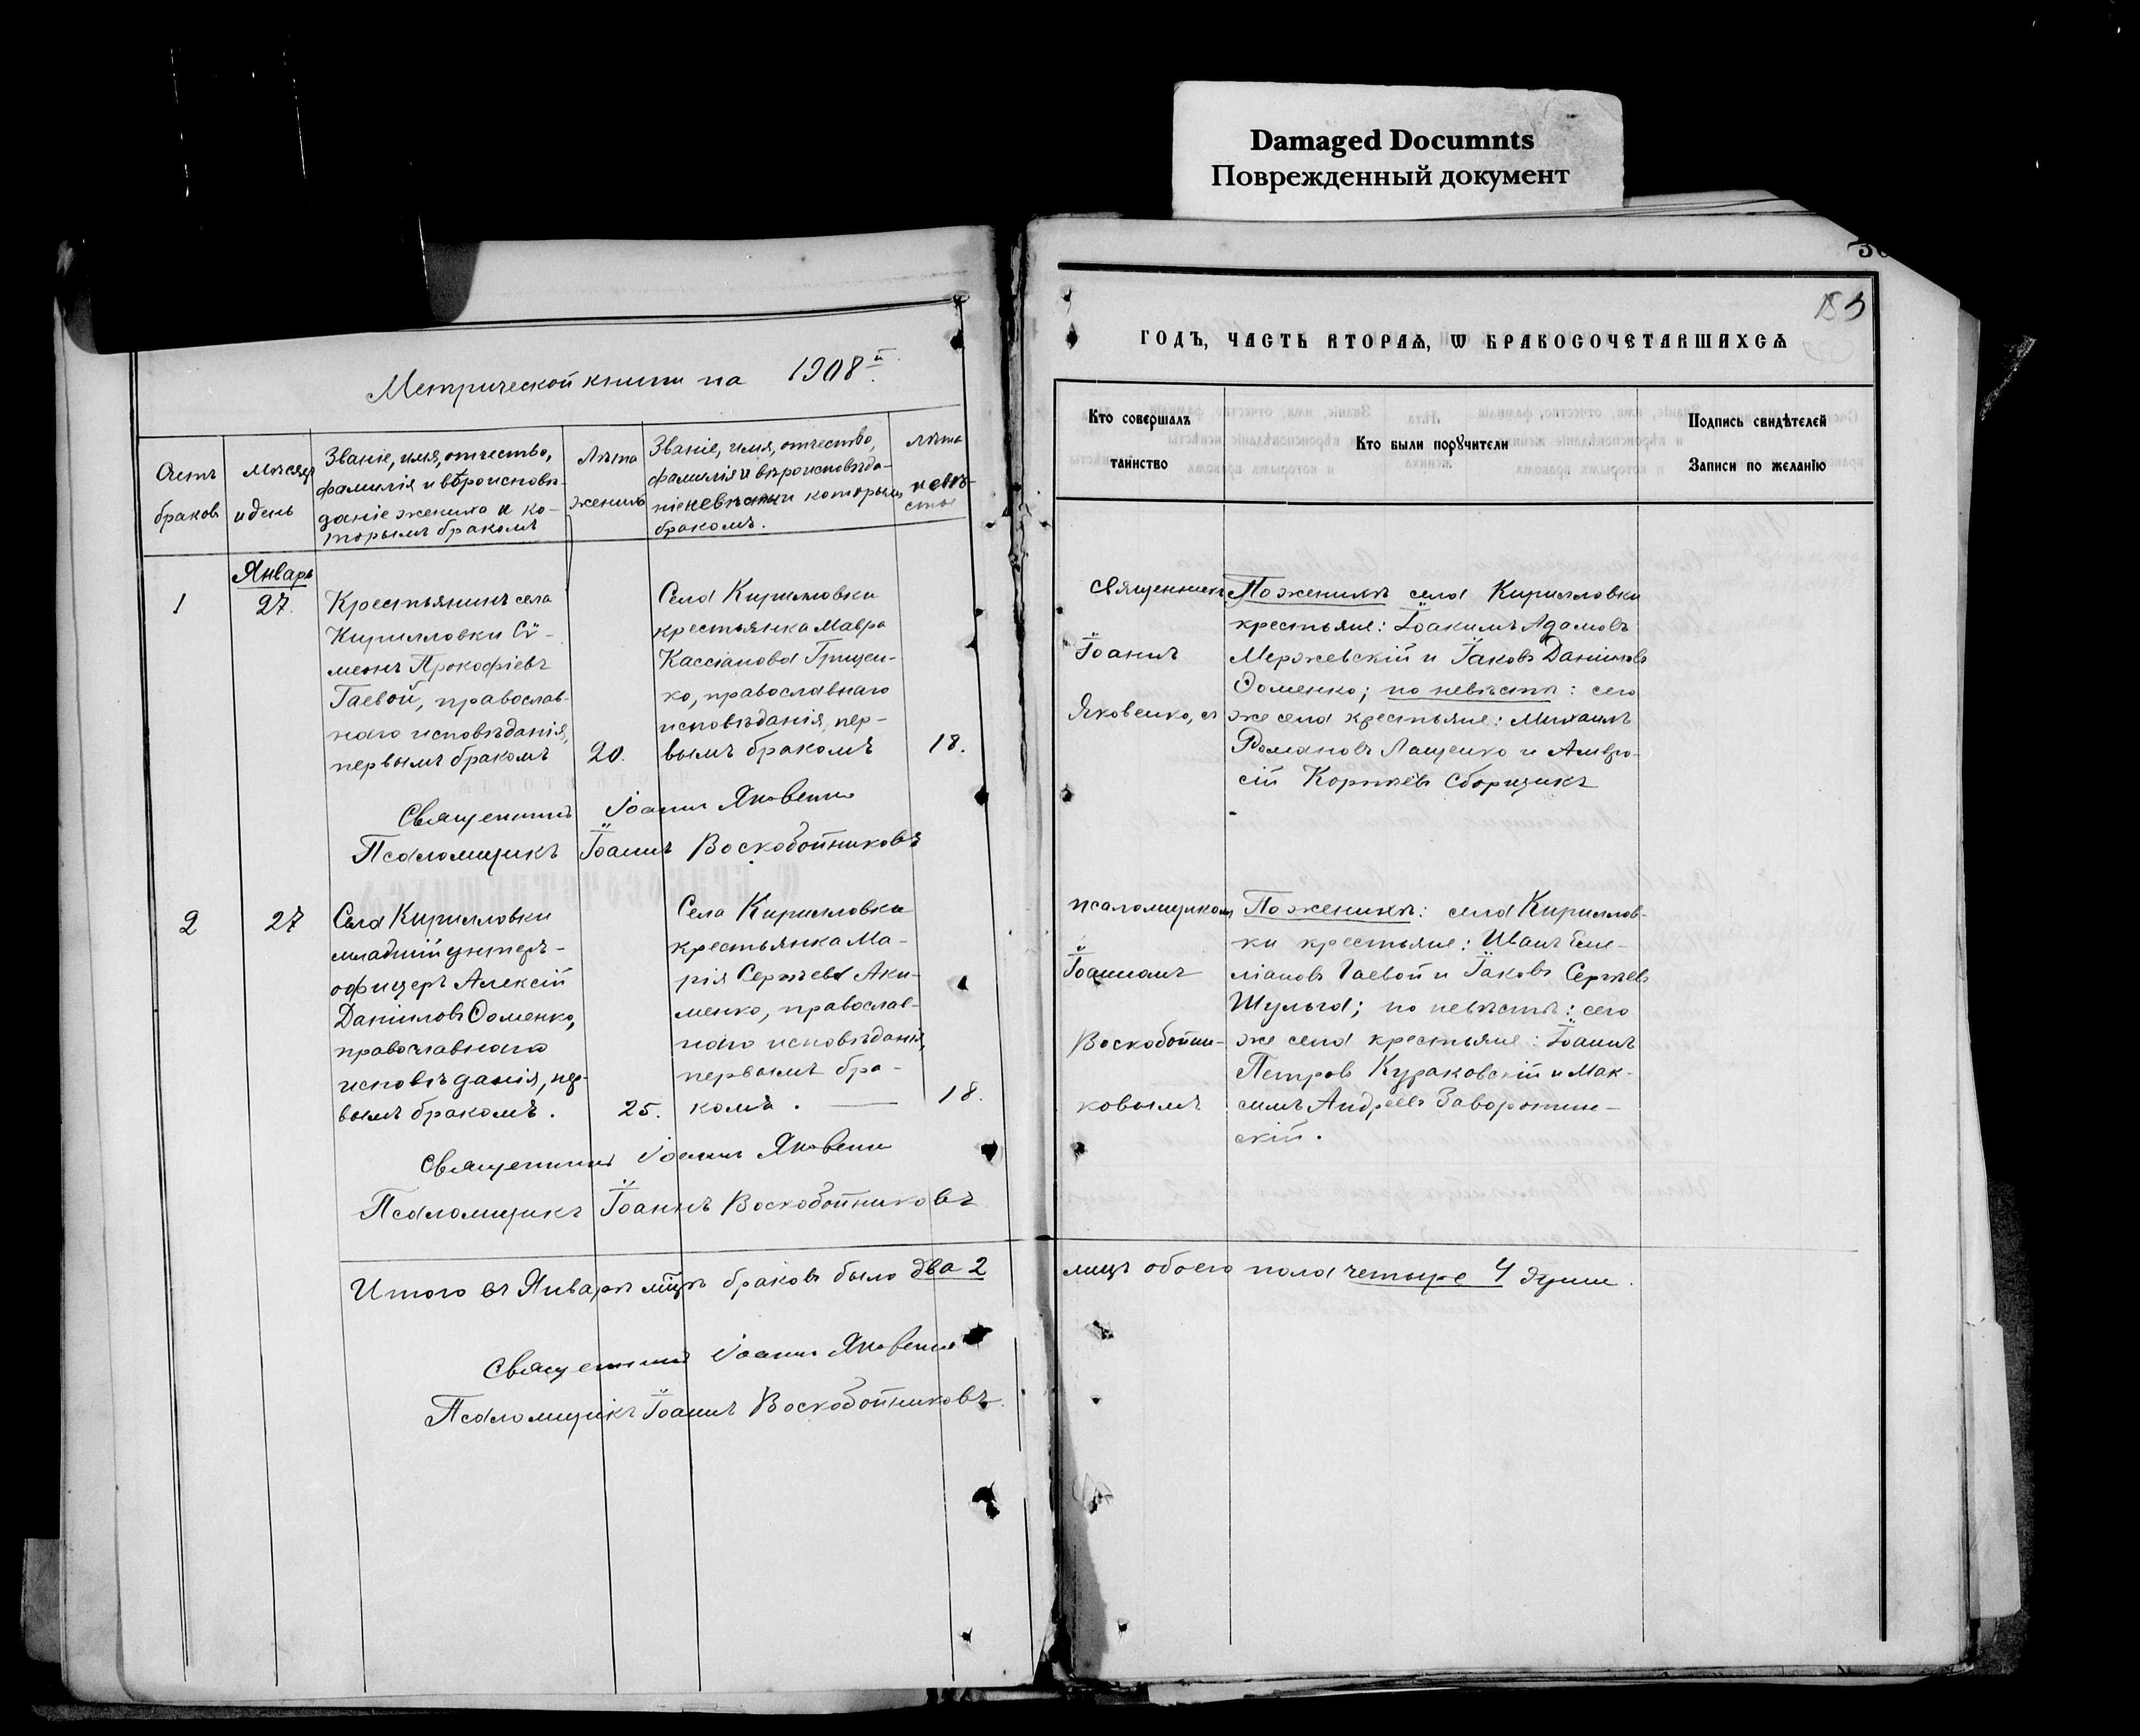 Damaged Documnts
Поврежденный документ
Метрической книги на 1908й
Счетъ браковъ
Мѣсяцъ и день
Званіе, имя, отчество,
фамилія и вѣроисповѣ-
даніе жениха и ко-
торымъ бракомъ
Лѣта
жениха
Званіе, имя, отчество,
фамилія и вѣроисповѣда-
ніе невѣсты и которымъ
бракомъ.
Лѣта
невѣ-
сты
Январь
1
27.
Крестьянинъ села
Кирилловки Сѵ-
меонъ Прокофіевъ
Гаевой, православ-
наго исповѣданія,
первымъ бракомъ
20.
Села Кирилловки
крестьянка Мавра
Кассіанова Грицен-
ко, православнаго
исповѣданія, пер-
вымъ бракомъ
18.
Священникъ Іоаннъ Яковенко
Псаломщикъ Іоаннъ Воскобойниковъ
2
27
Села Кирилловки
младшій унтеръ-
офицеръ Алексій
Даніиловъ Ѳоменко,
православнаго
исповѣданія, пер-
вымъ бракомъ.
25.
Села Кирилловки
крестьянка Ма-
рія Сергѣева Аки-
менко, православ-
наго исповѣданія,
первымъ бра-
комъ.
18.
Священникъ Іоаннъ Яковенко
Псаломщикъ Іоаннъ Воскобойниковъ
Итого въ Январѣ мцѣ браковъ было два 2
Священникъ Іоаннъ Яковенко
Псаломщикъ Іоаннъ Воскобойниковъ
ГОДЪ, ЧАСТЬ ВТОРАѦ, Ѡ БРАКОСОЧЕТАВШИХСѦ
Кто совершалъ
таинство
Кто были порꙋчители
Подпись свидѣтелей
Записи по желанїю
Священникъ
Іоаннъ
Яковенко, съ
По женихѣ села Кирилловки
крестьяне: Іоакимъ Адамовъ
Мержевскій и Іаковъ Даніиловъ
Ѳоменко; по невѣстѣ: сего
же села крестьяне: Михаилъ
Романовъ Лащенко и Амвро-
сій Корнѣевъ Сборщикъ
псаломщикомъ
Іоанномъ
Воскобойни-
ковымъ
По женихѣ: села Кириллов-
ки крестьяне: Иванъ Еме-
ліановъ Гаевой и Іаковъ Сергѣевъ
Шульга; по невѣстѣ: сего
же села крестьяне: Іоаннъ
Петровъ Кураковскій и Мак-
симъ Андреевъ Заворотин-
скій.
лицъ обоего пола четыре 4 души.